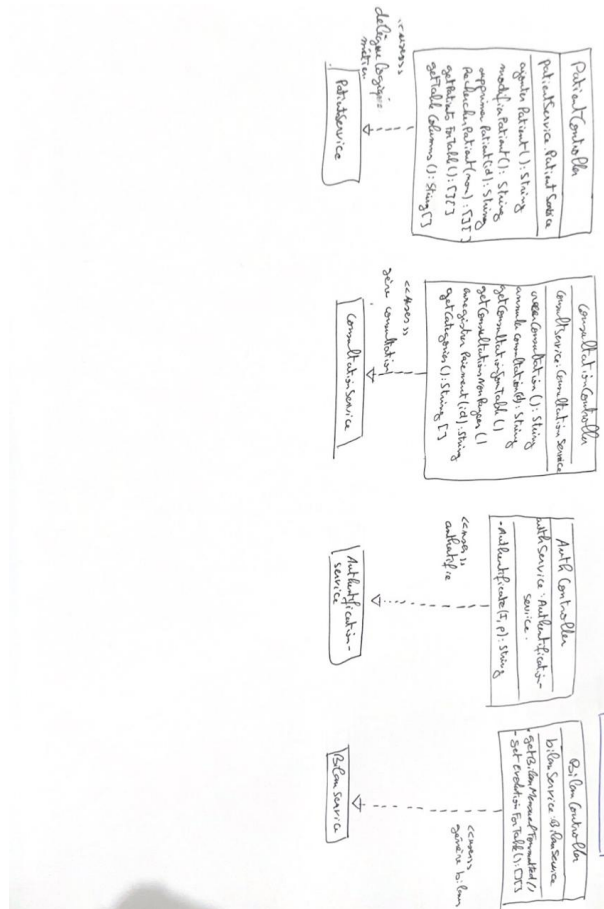 PatientController
patientService: PatientService
ajouterPatient(): String
modifierPatient(): String
supprimerPatient(id): String
RechercherPatient(nom): [][]
getPatients ForTable(): [][]
getTable Columns(): String[]
<<uses>>
délègue logique
métier
PatientService
ConsultationController
consultService: Consultation Service
créerConsultation(): String
annulerConsultation(id): String
getConsultationForTable()
getConsultationsNonPayees()
enregistrer Paiement(id): String
getCategories(): String[]
<<uses>>
gère consultation
ConsultationService
Auth Controller
authService: Authentification-
service.
- Authentificate(I, p): String
<<uses>>
authentifie
Authentification-
service
Bilan Controller
bilanService: BilanService
- getBilanMensuelFormatted()
- get evolution For Table(): [][]
<<uses>>
génère bilan
Bilan service